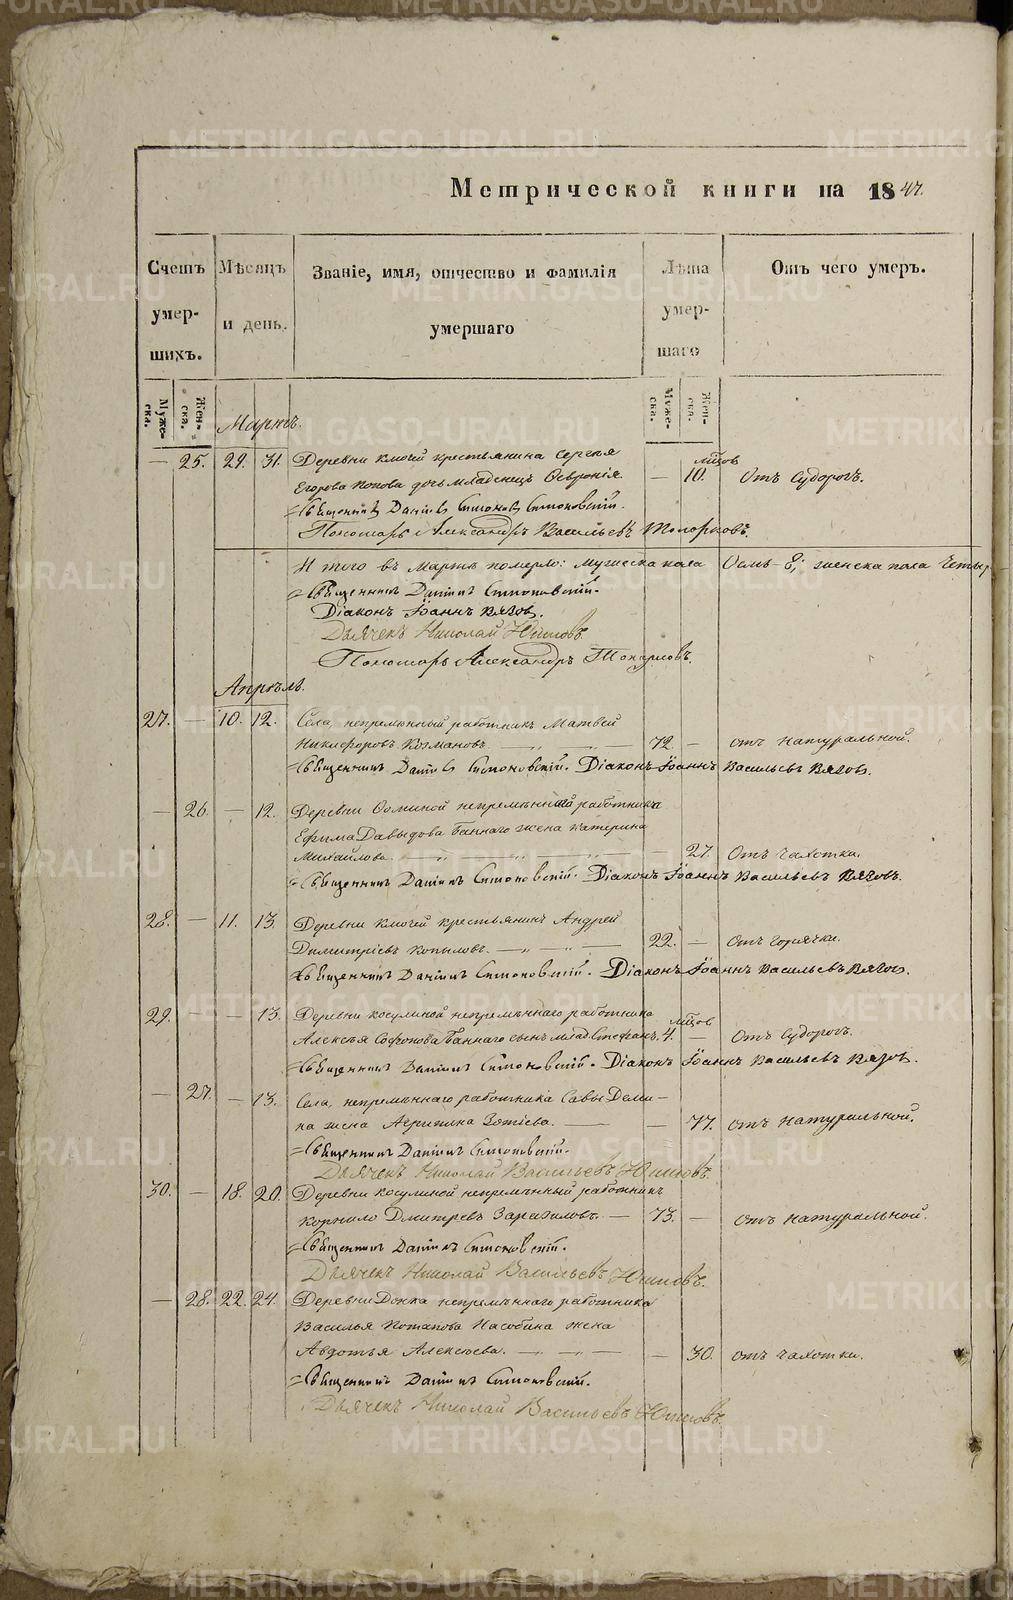 Метрической книги на 1847.
Счетъ умер- шихъ.
Мѣсяцъ и день.
Званіе, имя, отчество и фамилія умершаго
Лѣта умер- шаго
Отъ чего умеръ.
Муже- ска. Жен- ска.
Муже- ска. Жен- ска.
Мартъ.
— 25. 29. 31. Деревни Ключей крестьянина Сергея
Егорова Попова дочь младенецъ Февронія. — мѣсцов 10. Отъ судорогъ.
Священникъ Даніилъ Симоновскій.
Пономарь Александръ Васильевъ Топорковъ.
И того въ Мартѣ померло: мужеска пола Осмь — 8; женска пола четыр
Священникъ Даніилъ Симоновскій.
Діаконъ Іоаннъ Вязов.
Дьячекъ Николай Юшковъ
Пономарь Александръ Топорковъ.
Апрѣль.
27. — 10. 12. Села, непремѣнный работникъ Матвей
Никифоровъ Космановъ. 72. — отъ натуральной.
Священникъ Даніилъ Симоновскій. Діаконъ Іоаннъ Васильевъ Вязов.
— 26. — 12. Деревни Осиной непремѣннаго работника
Ефима Давыдова Баннаго жена Катерина
Михайлова. — 27. Отъ чахотки.
Священникъ Даніилъ Симоновскій. Діаконъ Іоаннъ Васильевъ Вязовъ.
28. — 11. 13. Деревни Ключей крестьянинъ Андрей
Димитріевъ Копыловъ. 22. — Отъ горячки.
Священникъ Даніилъ Симоновскій. Діаконъ Іоаннъ Васильевъ Вязов.
29. — — 13. Деревни Косулиной непремѣннаго работника
Алексѣя Софонова Баннаго сынъ млад. Стефанъ. мѣсцов 4. — Отъ судорогъ.
Священникъ Даніилъ Симоновскій. Діаконъ Іоаннъ Васильевъ Вязов.
— 27. — 13. Села, непремѣннаго работника Савы Деми-
на жена Агрипина Зотіева. — 77. отъ натуральной.
Священникъ Даніилъ Симоновскій.
Дьячекъ Николай Васильевъ Юшковъ.
30. — 18. 20. Деревни Косулиной непремѣнный работникъ
Корнило Дмитревъ 73. — отъ натуральной.
Священникъ Даніилъ Симоновскій.
Дьячекъ Николай Васильевъ Юшковъ.
— 28. 22. 24. Деревни непремѣннаго работника
Василья Потапова жена
Авдотья Алексѣева. — 30. отъ чахотки.
Священникъ Даніилъ Симоновскій.
Дьячекъ Николай Васильевъ Юшковъ.
METRIKI.GASO-URAL.RU